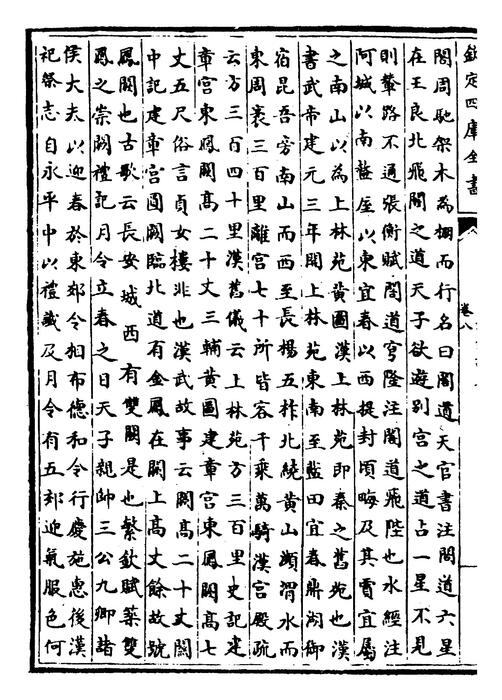 欽定四庫全書
卷八
閣周馳架木為棚而行名曰閣道天官書注閣道六星
在王良北飛閣之道天子欲遊別宮之道占一星不見
則輦路不通張衡賦閣道穹隆注閣道飛陛也水經注
阿城以南盩厔以東宜春以西提封頃畮及其賈直屬
之南山以為上林苑黄圖漢上林苑即秦之舊苑也漢
書武帝建元三年開上林苑東南至藍田宜春鼎湖御
宿昆吾旁南山而西至長楊五柞北繞黄山瀕渭水而
東周袤三百里離宫七十所皆容千乘萬騎漢宫殿疏
云方三百四十里漢舊儀云上林苑方三百里史記建
章宫東鳳闕髙二十丈三輔黄圖建章宫東鳳闕髙七
丈五尺俗言貞女樓非也漢武故事云闕髙二十丈關
中記建章宫圓闕臨北道有金鳳在闕上髙丈餘故號
鳳闕也古歌云長安城西有雙闕是也繁欽賦築雙
鳳之崇闕禮記月令立春之日天子親帥三公九卿諸
侯大夫以迎春於東郊令相布徳和令行慶施惠後漢
祀祭志自永平中以禮䜟及月令有五郊迎氣服色何